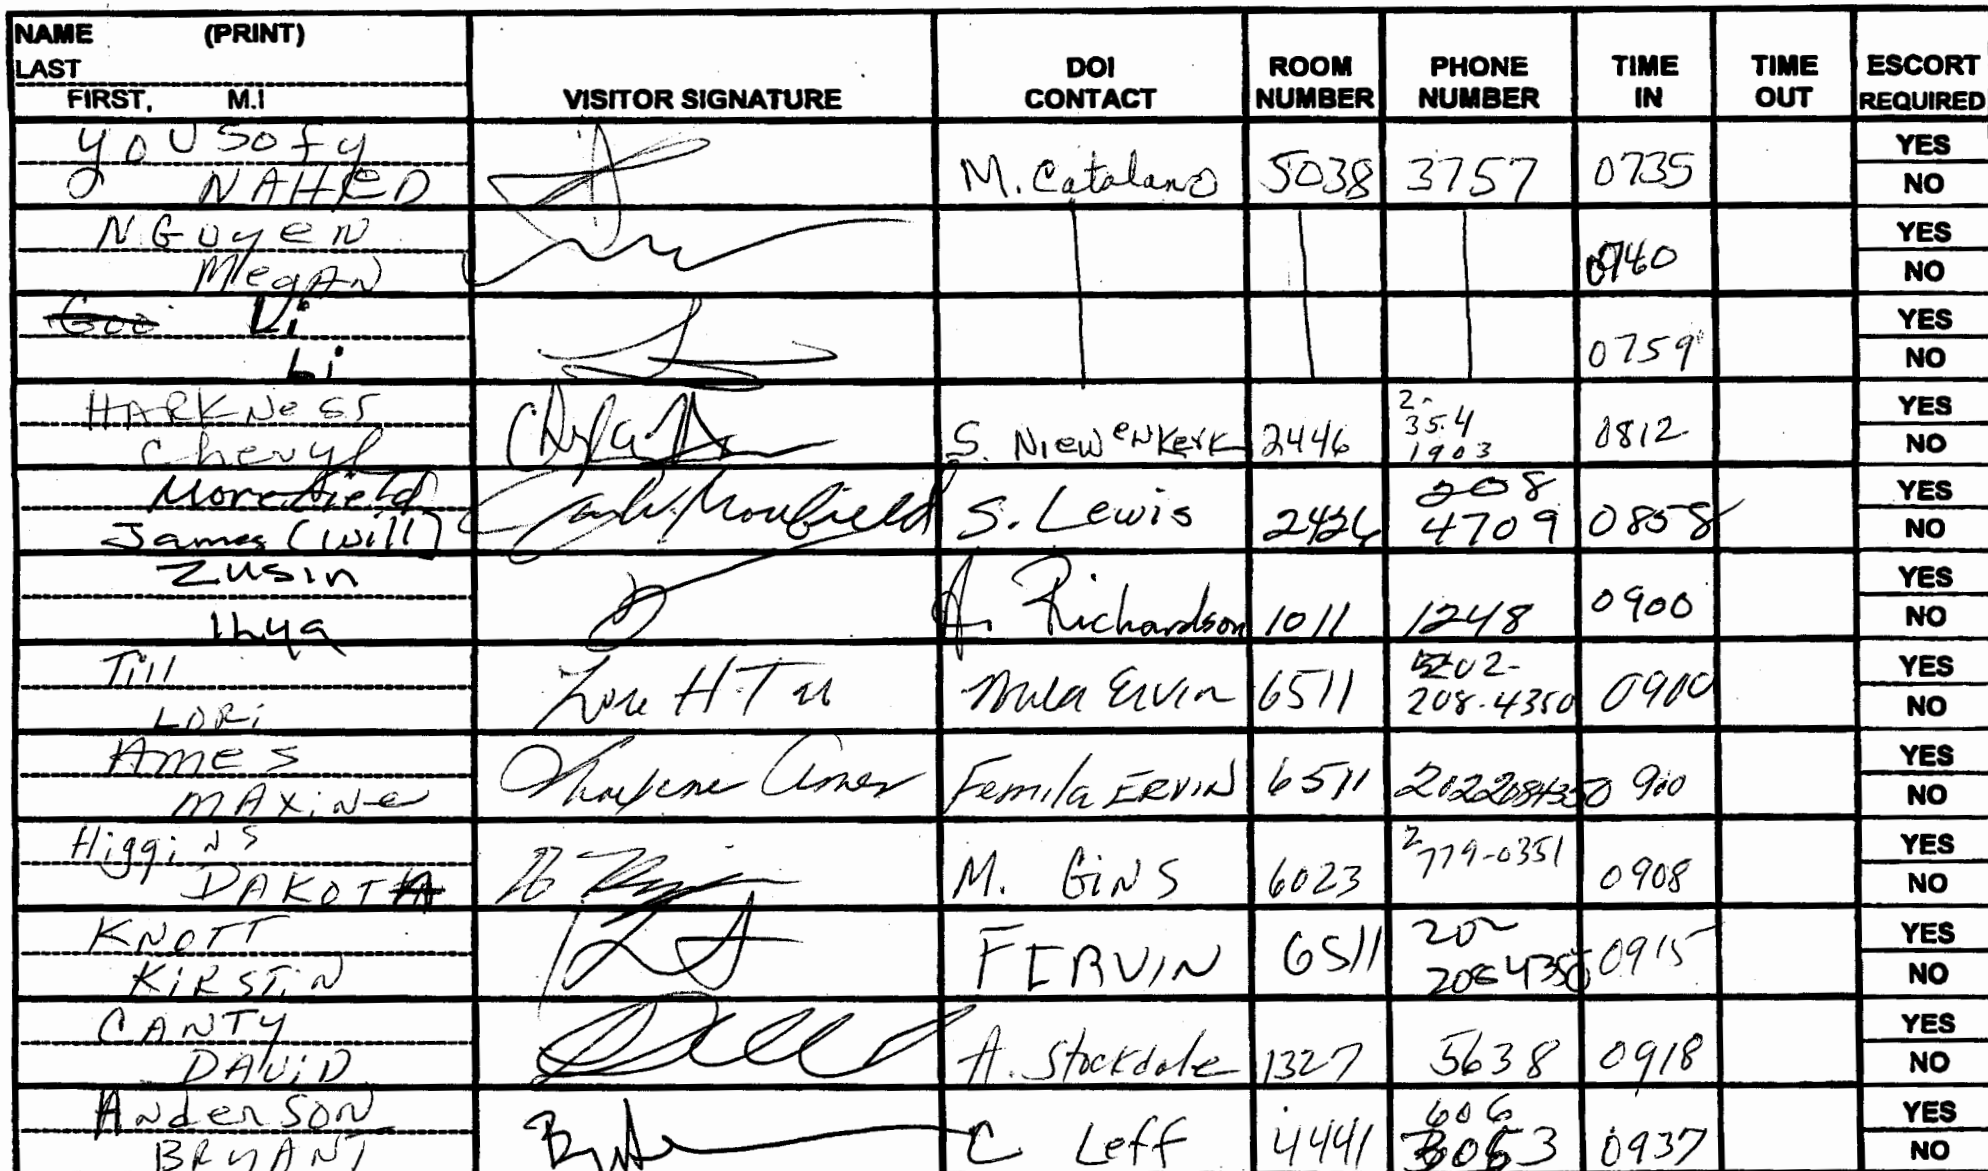 NAME (PRINT)
LAST
FIRST, M.I
VISITOR SIGNATURE
DOI CONTACT
ROOM NUMBER
PHONE NUMBER
TIME IN
TIME OUT
ESCORT REQUIRED
YOUSOFY
NAHED
M. Catalano 5038 3757 0735
YES
NO
NGUYEN
MegAN
0740
YES
NO
Li
Li
0759
YES
NO
HARKNeSS
Cheryl
S. NIEWENKERK 2446 2-354 1903 0812
YES
NO
Morefield
James (Will)
S. Lewis 2426 208 4709 0858
YES
NO
Zusin
Ilya
A. Richardson 1011 1248 0900
YES
NO
Till
LORi
Lori H Till
Ervin 6511 202-208-4350 0900
YES
NO
AmeS
MAXiNe
Maxine Ames
Femila ERVIN 6511 2022084350 900
YES
NO
HiggiNS
DAKOTA
M. GiNS 6023 2 779-0351 0908
YES
NO
KNOTT
KiRSTiN
F ERVIN 6511 202 208 4350 0915
YES
NO
CANTY
DAViD
A. Stockdale 1327 5638 0918
YES
NO
ANderSON
BRYANT
C Leff 4441 0937
YES
NO